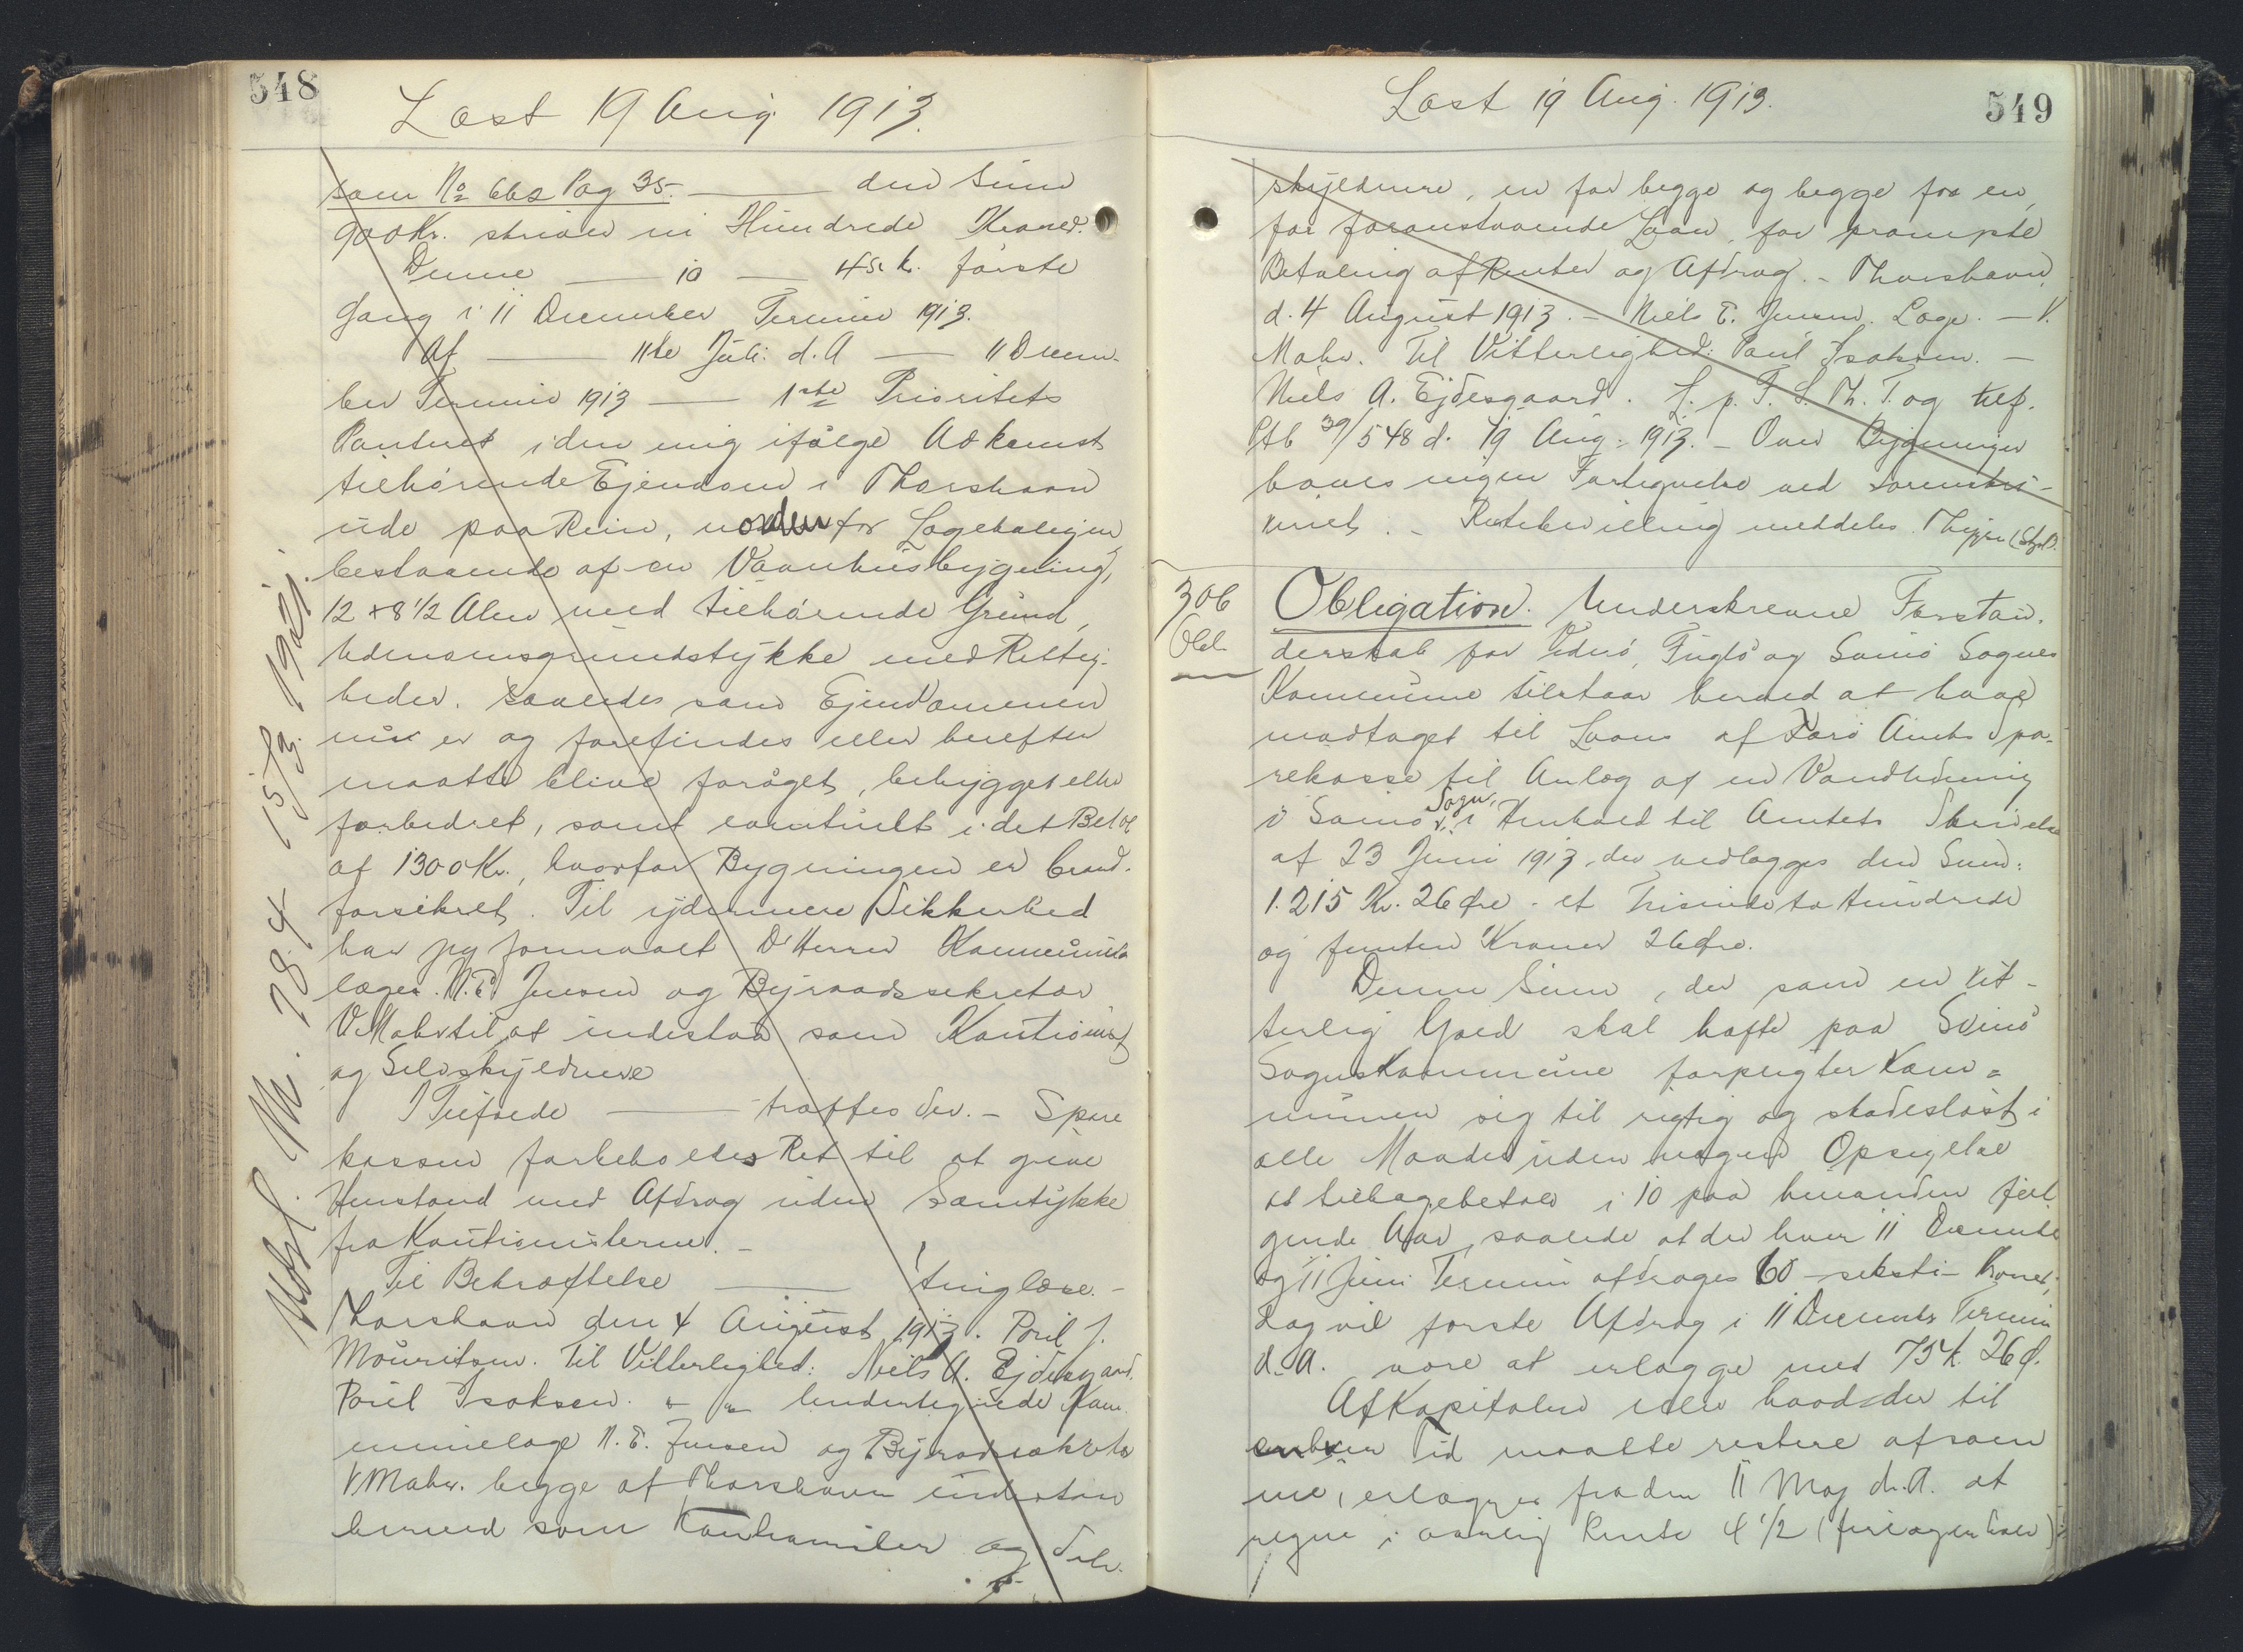 548
Læst 19 Aug 1913.
som No 662 Pag 35. — den Sum
900 Kr. skriver ni Hundrede Kroner.
Denne — 10 — 45 k. første
Gang i 11 December Termin 1913.
Af — 11te Juli d. A — 11 Decem-
ber Termin 1913 — 1ste Prioritets
Panteret i den mig ifølge Adkomst
tilhørende Ejendom i Thorshavn
ude paa Rein, norden for Lægeboligen
bestaaende af en Vaanhusbygning,
12 x 8 1/2 Alen med tilhørende Grund,
Udenomsgrundstykke med Rettig-
heder. saaledes som Ejendommen
nu er og forefindes eller herefter
maatte blive forøget, bebygget eller
forbedret, samt eventuelt i det Beløb
af 1300 Kr., hvorfor Bygningen er brand-
forsikret. Til ydermere Sikkerhed
har jeg formaaet D'Herrer Kommune
læger N. E. Jensen og Byraadssekretær
V. Mohr til at indestaa som Kautionist
og Selvskyldnere
I Tilfælde — træffes der. – Spare
kassen forbeholdes Ret til at give
Henstand med Afdrag uden Samtykke
fra Kautionisterne. –
Til Bekræftelse — tinglæse. –
Thorshavn den 4 August 1913. Poul J.
Mouritsen. Til Vitterlighed: Niels A. Ejdesgaard.
Poul Isaksen. – Undertegnede Kom
munelæge N. E. Jensen og Byraadssekretær
V Mohr. begge af Thorshavn indestaar
herved som Kautionister og Selv-
Udsl. M. 284 15/9. 192
Læst 19 Aug. 1913.
549
skyldnere, en for begge og begge for en,
for foranstaaende Laan, for prompte
Betaling af Renter og Afdrag. – Thorshavn,
d. 4 August 1913. – Niels E. Jensen. Læge. – V.
Mohr. Til Vitterlighed: Poul Isaksen. –
Niels A. Ejdesgaard. L. p. F. S. Th. T. og tilf.
Ptb 39/548 d. 19 Aug. 1913. – Over Bygningen
haves ingen Fortegnelse ved Sorenskri-
veriet. – Retsbevilling meddeles.
306
Obl.
Obligation. Underskrevne Forstan-
derskab for Viderø, Fuglø og Svinø Sogne
Kommune tilstaar herved at have
modtaget til Laans af Færø Amts Spa-
rekasse til Anlæg af en Vandledning
i Svinø Sogn, i Henhold til Amtets Skrivelse
af 23 Juni 1913, der vedlægges den Sum:
1.215 Kr. 26 Øre – et Tusinde to Hundrede
og femten Kroner 26 Øre.
Denne Sum, der som en vit-
terlig Gæld skal hæfte paa Svinø
Sognekommune forpligter Kom-
munen sig til rigtig og skadesløst i
alle Maader uden nogen Opsigelse
at tilbagebetale i 10 paa hinanden føl
gende Aar, saalede at der hver 11 December
og 11 Juni Termin afdrages 60 – seksti – Kroner,
dog vil første Afdrag i 11 December Termin
d. A. være at erlægge med 75 k. 26 Ø.
Af Kapitalen eller hvad der til
enhver Tid maatte restere af sam
me, erlægges fra den 11 Maj d. A. at
regne i aarlig Rente 4 1/2 (fire og en halv)